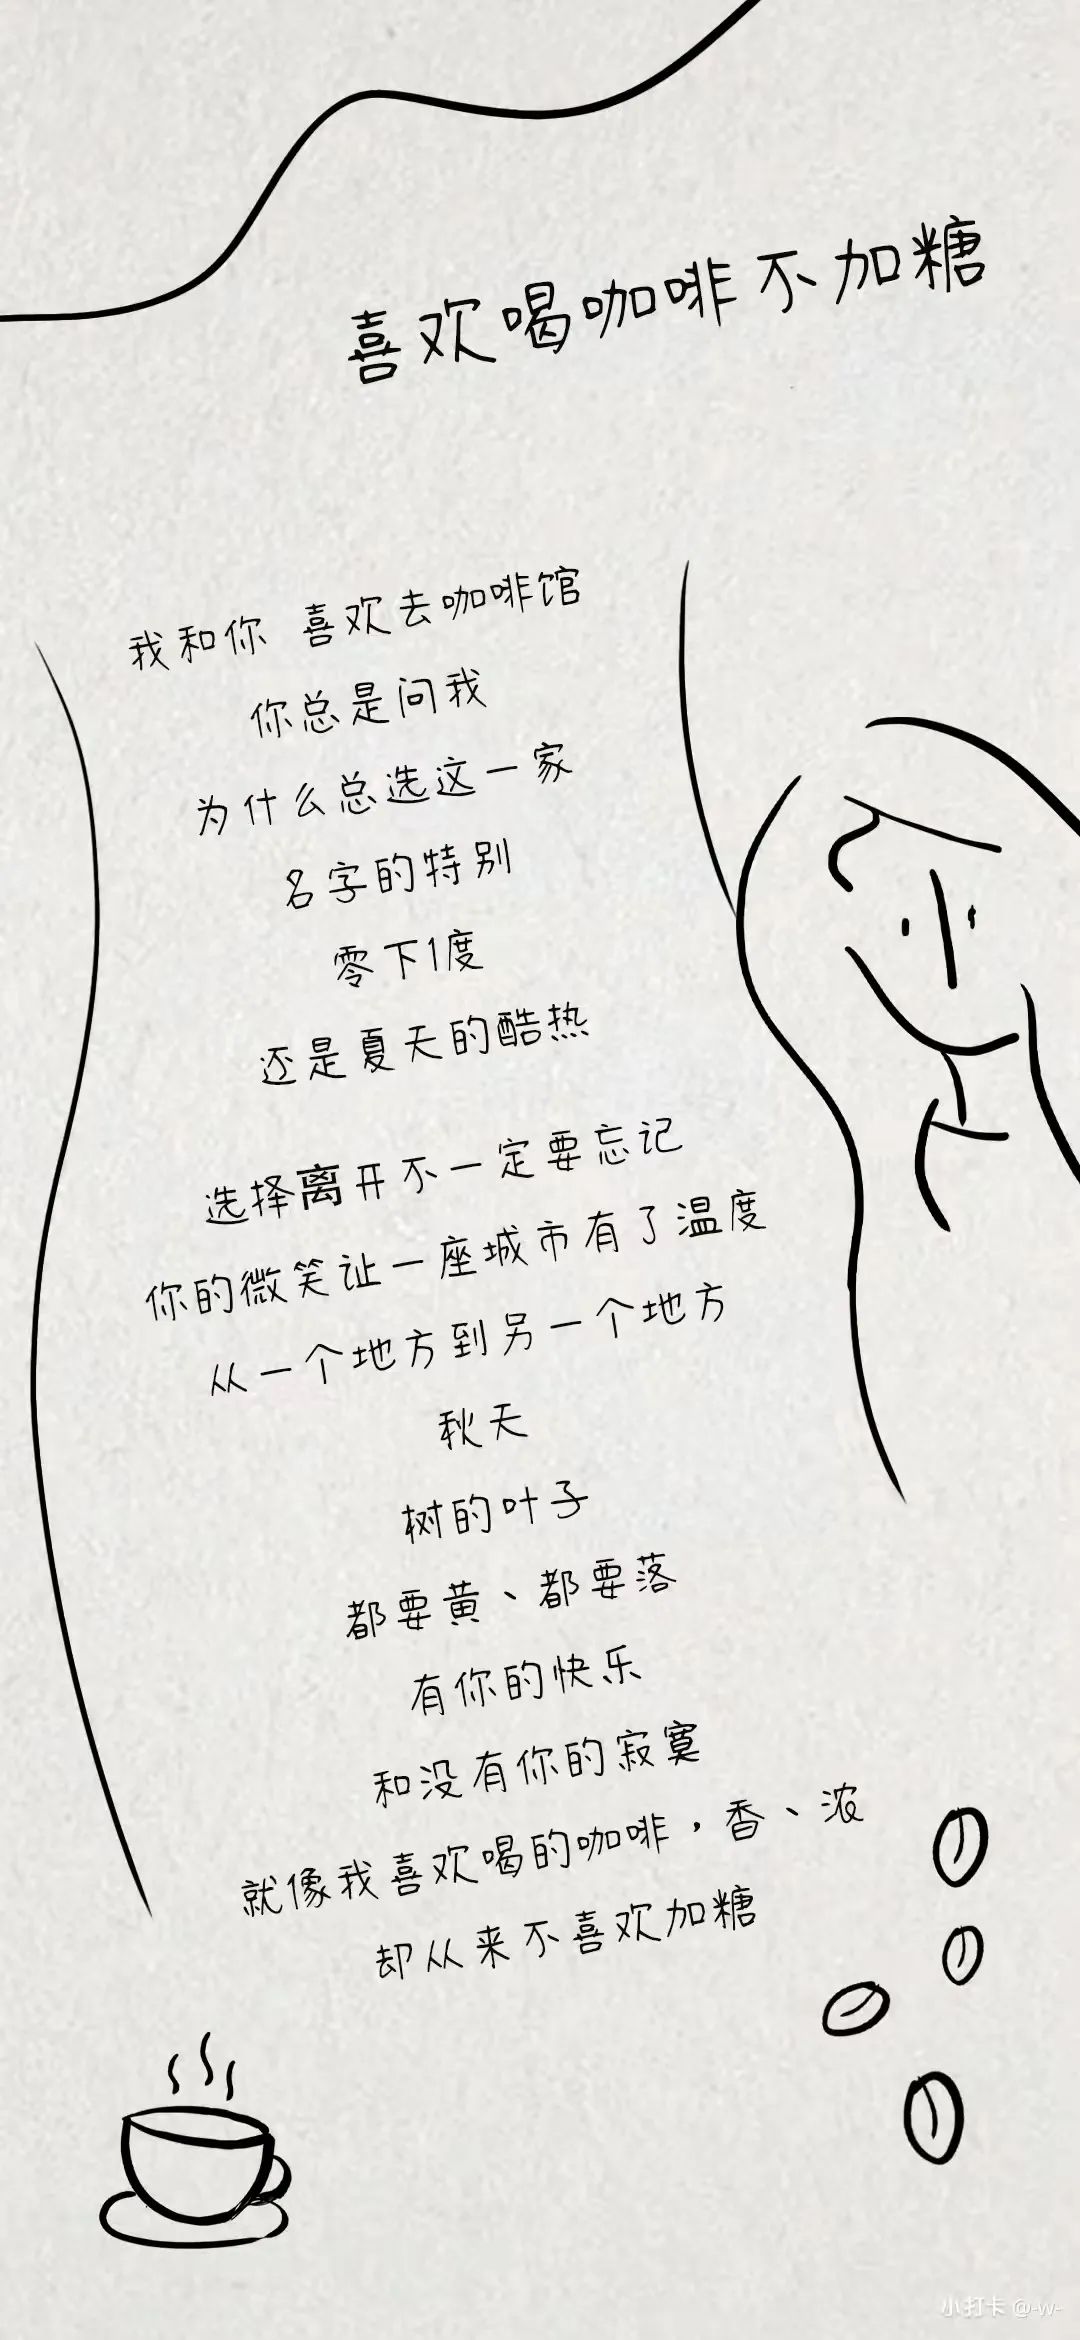 喜欢喝咖啡不加糖
我和你 喜欢去咖啡馆
你总是问我
为什么总选这一家
名字的特别
零下1度
还是夏天的酷热
选择离开不一定要忘记
你的微笑让一座城市有了温度
从一个地方到另一个地方
秋天
树的叶子
都要黄、都要落
有你的快乐
和没有你的寂寞
就像我喜欢喝的咖啡，香、浓
却从来不喜欢加糖
小打卡 @-w-